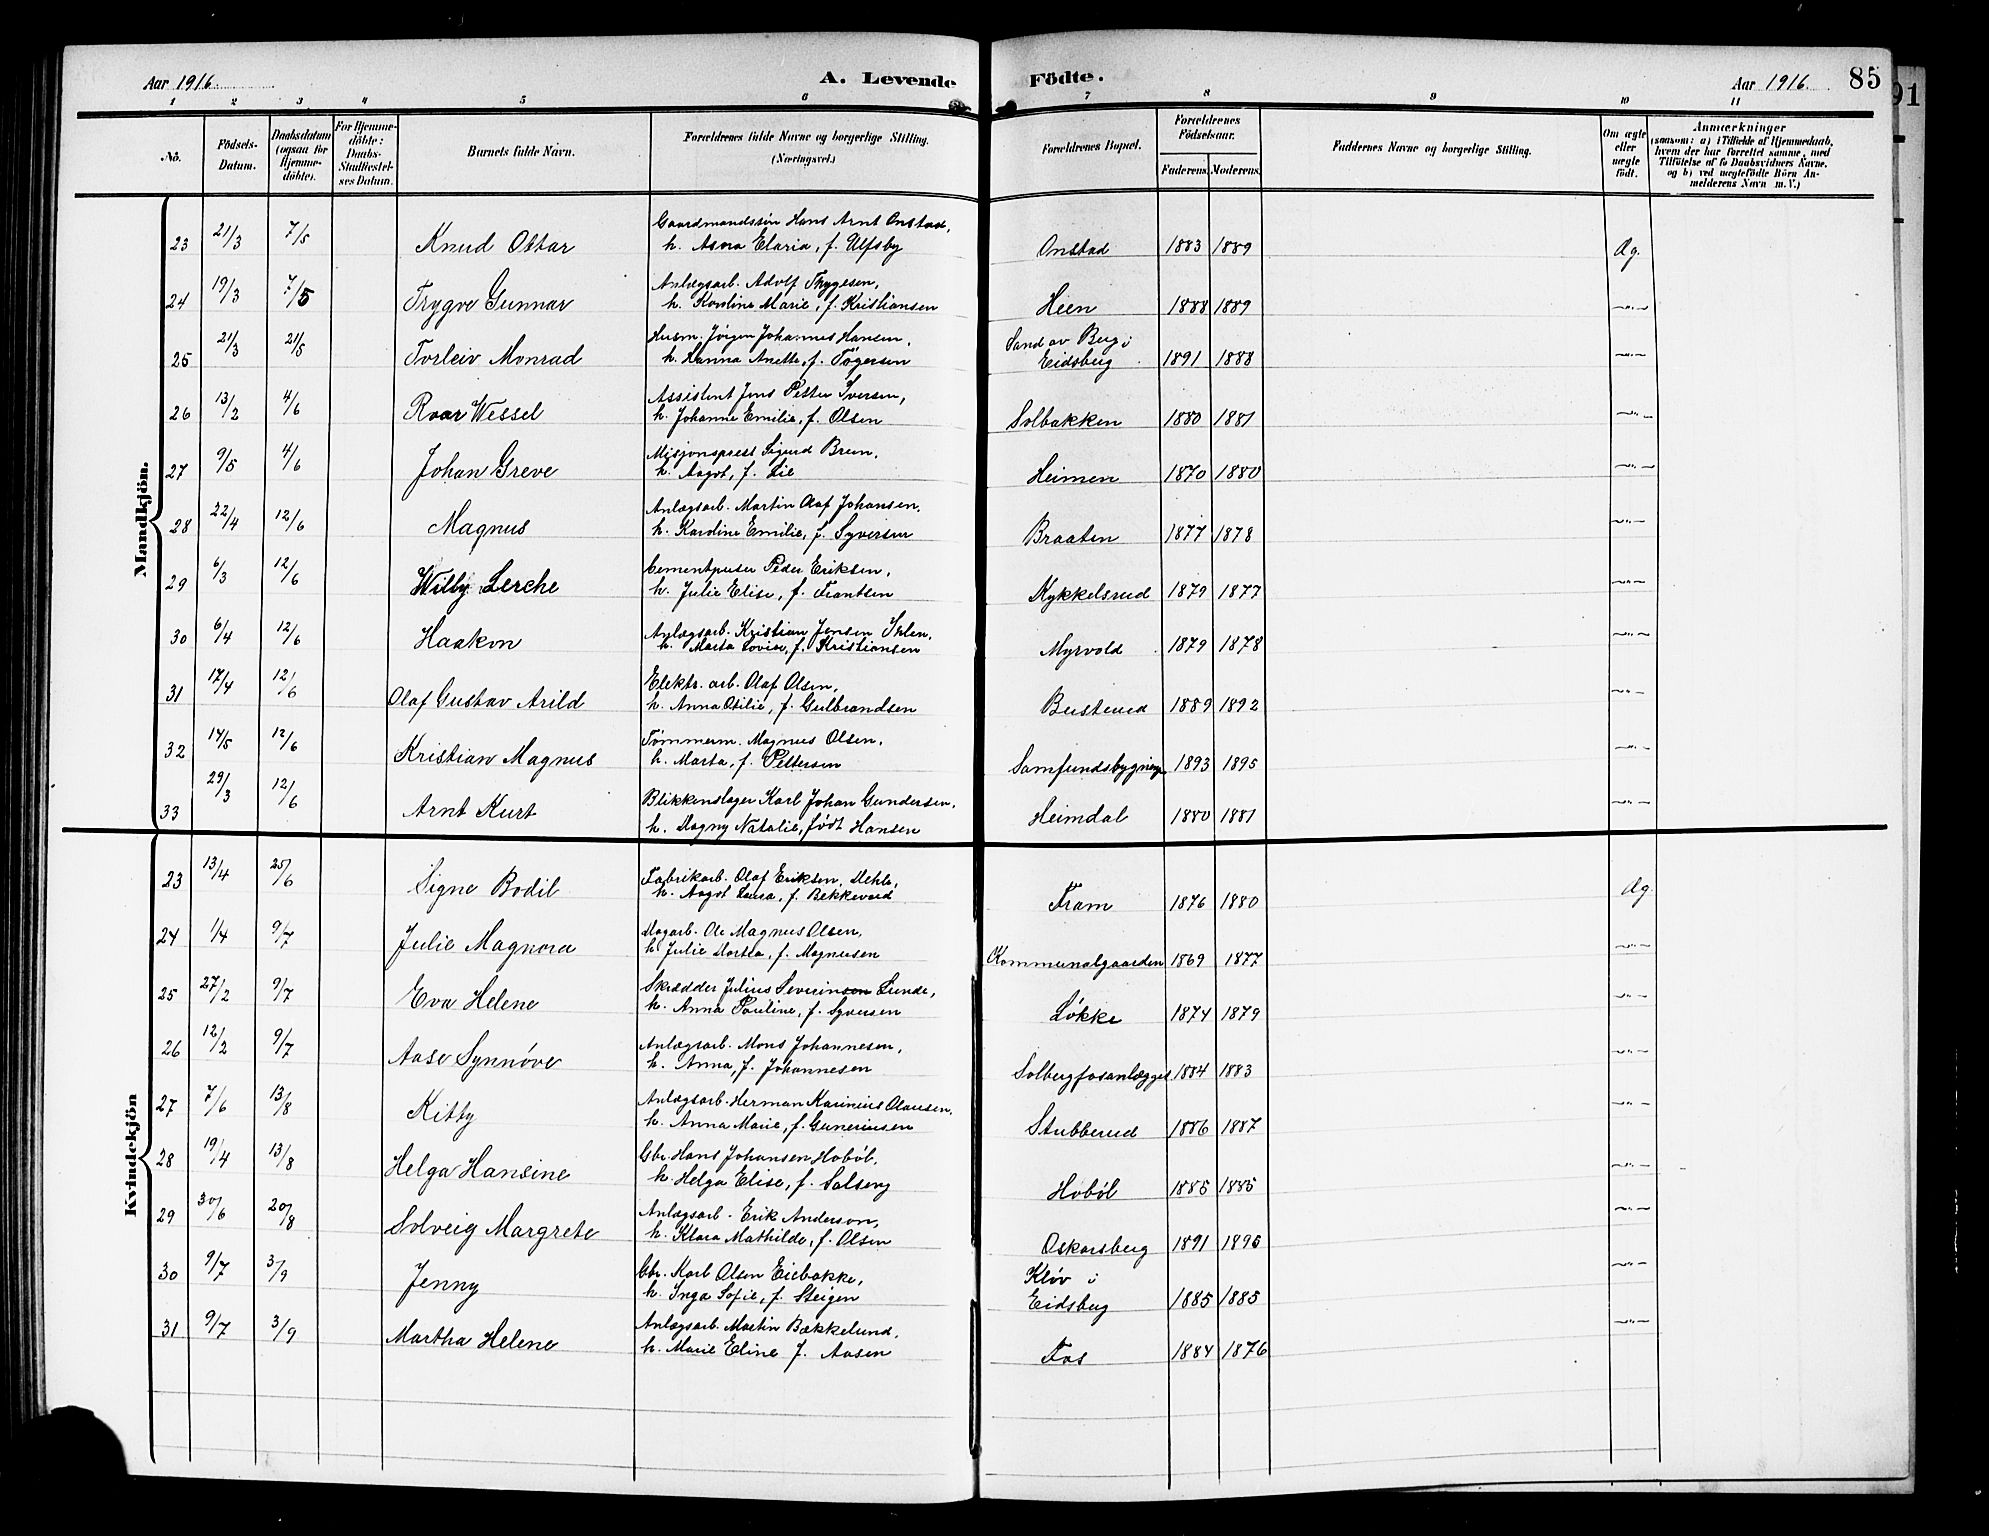 Aar 1916. A. Levende Födte. Aar 1916. 85
91
1 2 3 4 5 6 7 8 9 10 11
No. Födsels-Datum. Daabsdatum (ogsaa för Hjemmedöbte). For Hjemmedöbte: Daabs-Stadfæstelses Datum. Barnets fulde Navn. Forældrenes fulde Navne og borgerlige Stilling. (Næringsvei.) Forældrenes Bopæl. Forældrenes Födselsaar. Faderens. Moderens. Faddernes Navne og borgerlige Stilling. Om ægte eller uægte födt. Anmærkninger (saasom: a) i Tilfælde af Hjemmedaab, hvem der har forrettet samme, med Tilföielse af to Daabsvidners Navne, og b) ved uægtefödte Börn Anmelderens Navn m. V.)
Mandkjön.
23 21/3 7/5 Knud Ottar Gaardmandssön Hans Arnt Onstad,
h. Asora Elaria, f. Ulfsby Onstad 1883 1889 Æg.
24 19/3 7/5 Trygve Gunnar Anlægsarb. Adolf Thygesen,
h. Karoline Marie, f. Kristiansen Heen 1888 1889 -"-
25 21/3 21/5 Torleiv Monrad Husm. Jörgen Johannes Hansen,
h. Hanna Anette, f. Tögersen Sand av Berg i
Eidsberg 1891 1888 -"-
26 13/2 4/6 Roar Wessel Assistent Jens Petter Iversen,
h. Johanne Emilie, f. Olsen Solbakken 1880 1881 -"-
27 9/5 4/6 Johan Greve Misjonsprest Sigurd Brun,
h. Aagot, f. Lie Heimen 1870 1880 -"-
28 22/4 12/6 Magnus Anlægsarb. Martin Olaf Johansen,
h. Karoline Emilie, f. Syversen Braaten 1877 1878 -"-
29 6/3 12/6 Willy Lerche Cementpuser Peder Eriksen,
h. Julie Elise, f. Frantsen Kykkelsrud 1879 1877 -"-
30 6/4 12/6 Haakon Anlægsarb. Kristian Jensen Ihlen,
h. Marta Lovise, f. Kristiansen Myrvold 1879 1878 -"-
31 17/4 12/6 Olaf Gustav Arild Elektr. arb. Olaf Olsen,
h. Anna Otilie, f. Gulbrandsen Busterud 1889 1892 -"-
32 14/5 12/6 Kristian Magnus Tömmerm. Magnus Olsen,
h. Marta, f. Pettersen Samfundsbygning 1893 1895 -"-
33 29/3 12/6 Arnt Kurt Blikkenslager Karl Johan Gundersen,
h. Dagny Natalie, född Hansen Heimdal 1880 1881 -"-
Kvindekjön
23 13/4 25/6 Signe Bodil Fabrikarb. Olaf Eriksen Dehle,
h. Aagot Laura, f. Bekkevard Fram 1876 1880 Æg.
24 1/4 9/7 Julie Magnora Dagarb. Ole Magnus Olsen,
h. Julie Dortea, f. Magnusen Kommunalgaarden 1869 1877 -"-
25 27/2 9/7 Eva Helene Skrædder Julius Severinsen Lunde,
h. Anna Pauline, f. Syversen Løkke 1874 1879 -"-
26 12/2 9/7 Aase Synnöve Anlægsarb. Mons Johannesen,
h. Anna, f. Johannesen Solbergfosanlægget 1884 1883 -"-
27 7/6 13/8 Kitty Anlægsarb. Herman Karinius Olausen,
h. Anna Marie, f. Gunerinsen Stubberud 1886 1887 -"-
28 19/4 13/8 Helga Hansine Gbr. Hans Johansen Hobøl,
h. Helga Elise, f. Solberg Hobøl 1885 1885 -"-
29 30/6 20/8 Solveig Margrete Anlægsarb. Erik Anderson,
h. Klara Mathilde, f. Olsen Oskarsberg 1891 1895 -"-
30 9/7 3/9 Jenny Gbr. Karl Olsen Eiebakke,
h. Inga Sofie, f. Steigen Kløv i
Eidsberg 1885 1885 -"-
31 9/7 3/9 Martha Helene Anlægsarb. Martin Bækkelund,
h. Marie Eline f. Aasen Fos 1884 1876 -"-